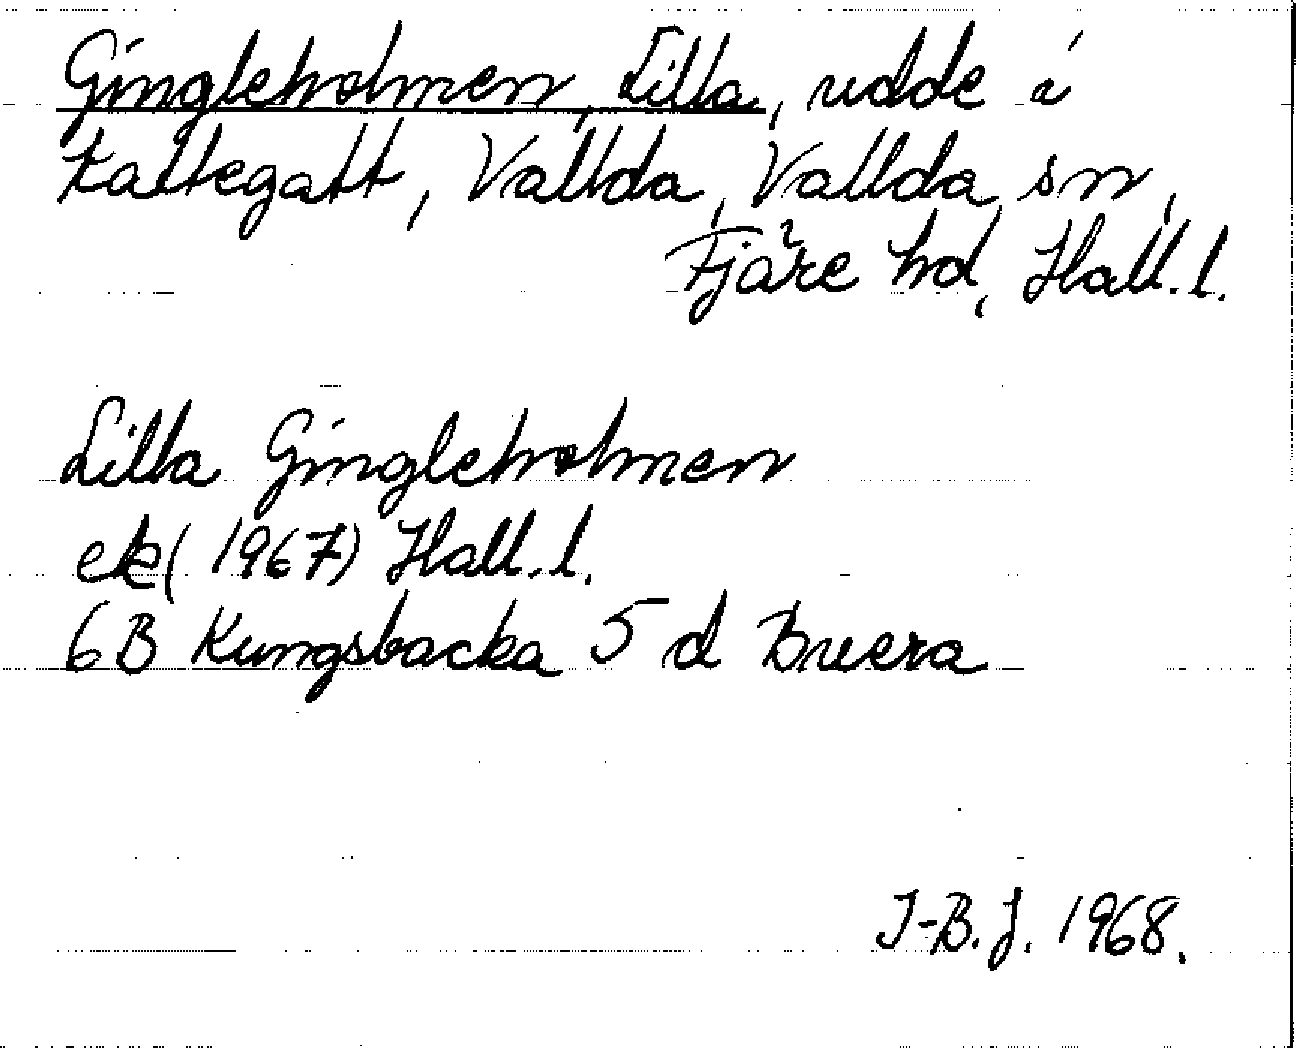 Gingleholmen, Lilla, udde i
Kattegatt, Vallda, Vallda sn,
Fjäre hd, Hall. l.
Lilla Gingleholmen
ek (1967) Hall. l.
6B Kungsbacka 5 d Buera
I-B. J. 1968.